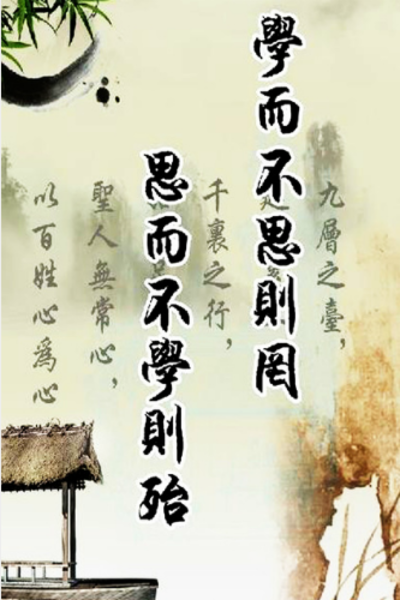 學而不思則罔
思而不學則殆
九層之臺，
千裏之行，
聖人無常心，
以百姓心爲心